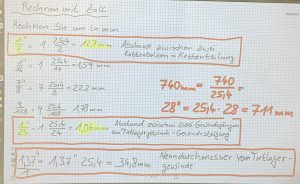 Rechnen mit Zoll
Rechnen Sie um in mm
1/2" = 1 · 25,4/2 = 12,7 mm Abstand zwischen zwei
Kettenbolzen = Kettenteilung
1/16" = 1 · 25,4/16 = 1,59 mm
7/8" = 7 · 25,4/8 = 22,2 mm
9/128" = 9 · 25,4/128 = 1,78 mm
1/24" = 1 · 25,4/24 = 1,06 mm Abstand zwischen zwei Gewindegängen
am Tretlagergewinde = Gewindesteigung
740mm = 740/25,4 =
28" = 25,4 · 28 = 711 mm
1,37" = 1,37 · 25,4 = 34,8 mm Nenndurchmesser vom Tretlager-
gewinde